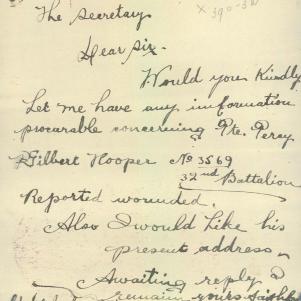 The Secretary
Dear Sir.
Would you Kindly
Let me have any imformation
procurable concerning Pte. Percy
Gilbert Hooper No 3569
32nd Battalion
Reported wounded.
Also I would Like his
present address
Awaiting reply
remain yours faithfully